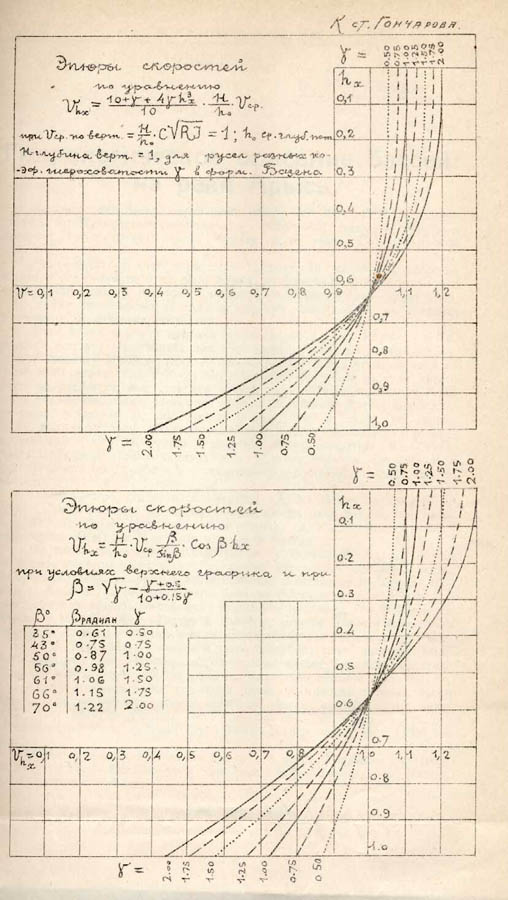 К ст. Гончарова.
Эпюры скоростей
по уравнению
Vhx = 10+γ+4γh³x / 10 · H/h₀ · Vср.
при Vср. по верт. = H/h₀ · C√RJ = 1; h₀ ср. глуб. пот.
H глубина верт. = 1, для русел разных ко-
-эф. шероховатости γ в форм. Базена
γ = 0.50 0.75 1.00 1.25 1.50 1.75 2.00
hx
0,1
0,2
0,3
0,4
0,5
0,6
V= 0,1 0,2 0,3 0,4 0,5 0,6 0,7 0,8 0,9 1,0 1,1 1,2
0,7
0,8
0,9
1,0
γ = 2.00 1.75 1.50 1.25 1.00 0.75 0.50
γ = 0.50 0.75 1.00 1.25 1.50 1.75 2.00
Эпюры скоростей
по уравнению
Vhx = H/h₀ · Vср β/sinβ · Cos β·hx
при условиях верхнего графика и при
β = √γ − γ+0.5 / 10+0.15γ
β° βрадиан γ
35° 0.61 0.50
43° 0.75 0.75
50° 0.87 1.00
56° 0.98 1.25
61° 1.06 1.50
66° 1.15 1.75
70° 1.22 2.00
hx
0.1
0.2
0.3
0.4
0.5
0.6
0.7
Vhx = 0,1 0,2 0,3 0,4 0,5 0,6 0,7 0,8 0,9 1,0 1,1 1,2
0.8
0.9
1.0
γ = 2.00 1.75 1.50 1.25 1.00 0.75 0.50